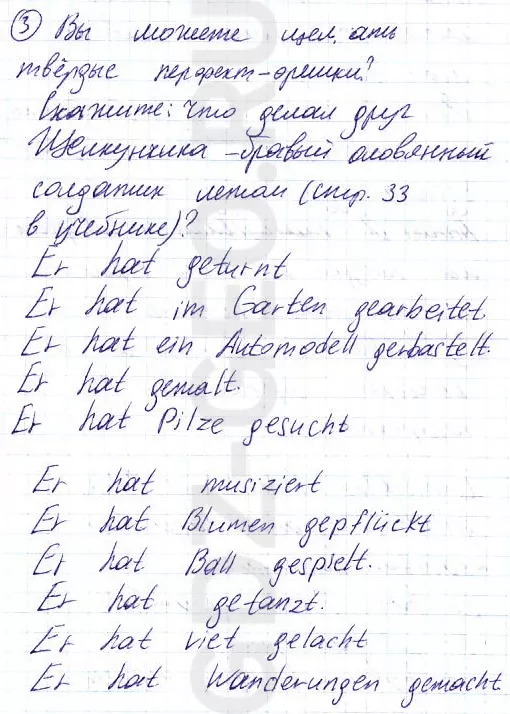 ③ Вы можете щелкать
твёрдые перфект-орешки?
Скажите: что делал друг
Щелкунчика - бравый оловянный
солдатик летом (стр. 33
в учебнике)?
Er hat geturnt
Er hat im Garten gearbeitet.
Er hat ein Automodell gerbastelt.
Er hat gemalt.
Er hat Pilze gesucht
Er hat musiziert
Er hat Blumen gepflückt
Er hat Ball gespielt.
Er hat getanzt.
Er hat viel gelacht
Er hat Wanderungen gemacht
GDZ-GEO.RU